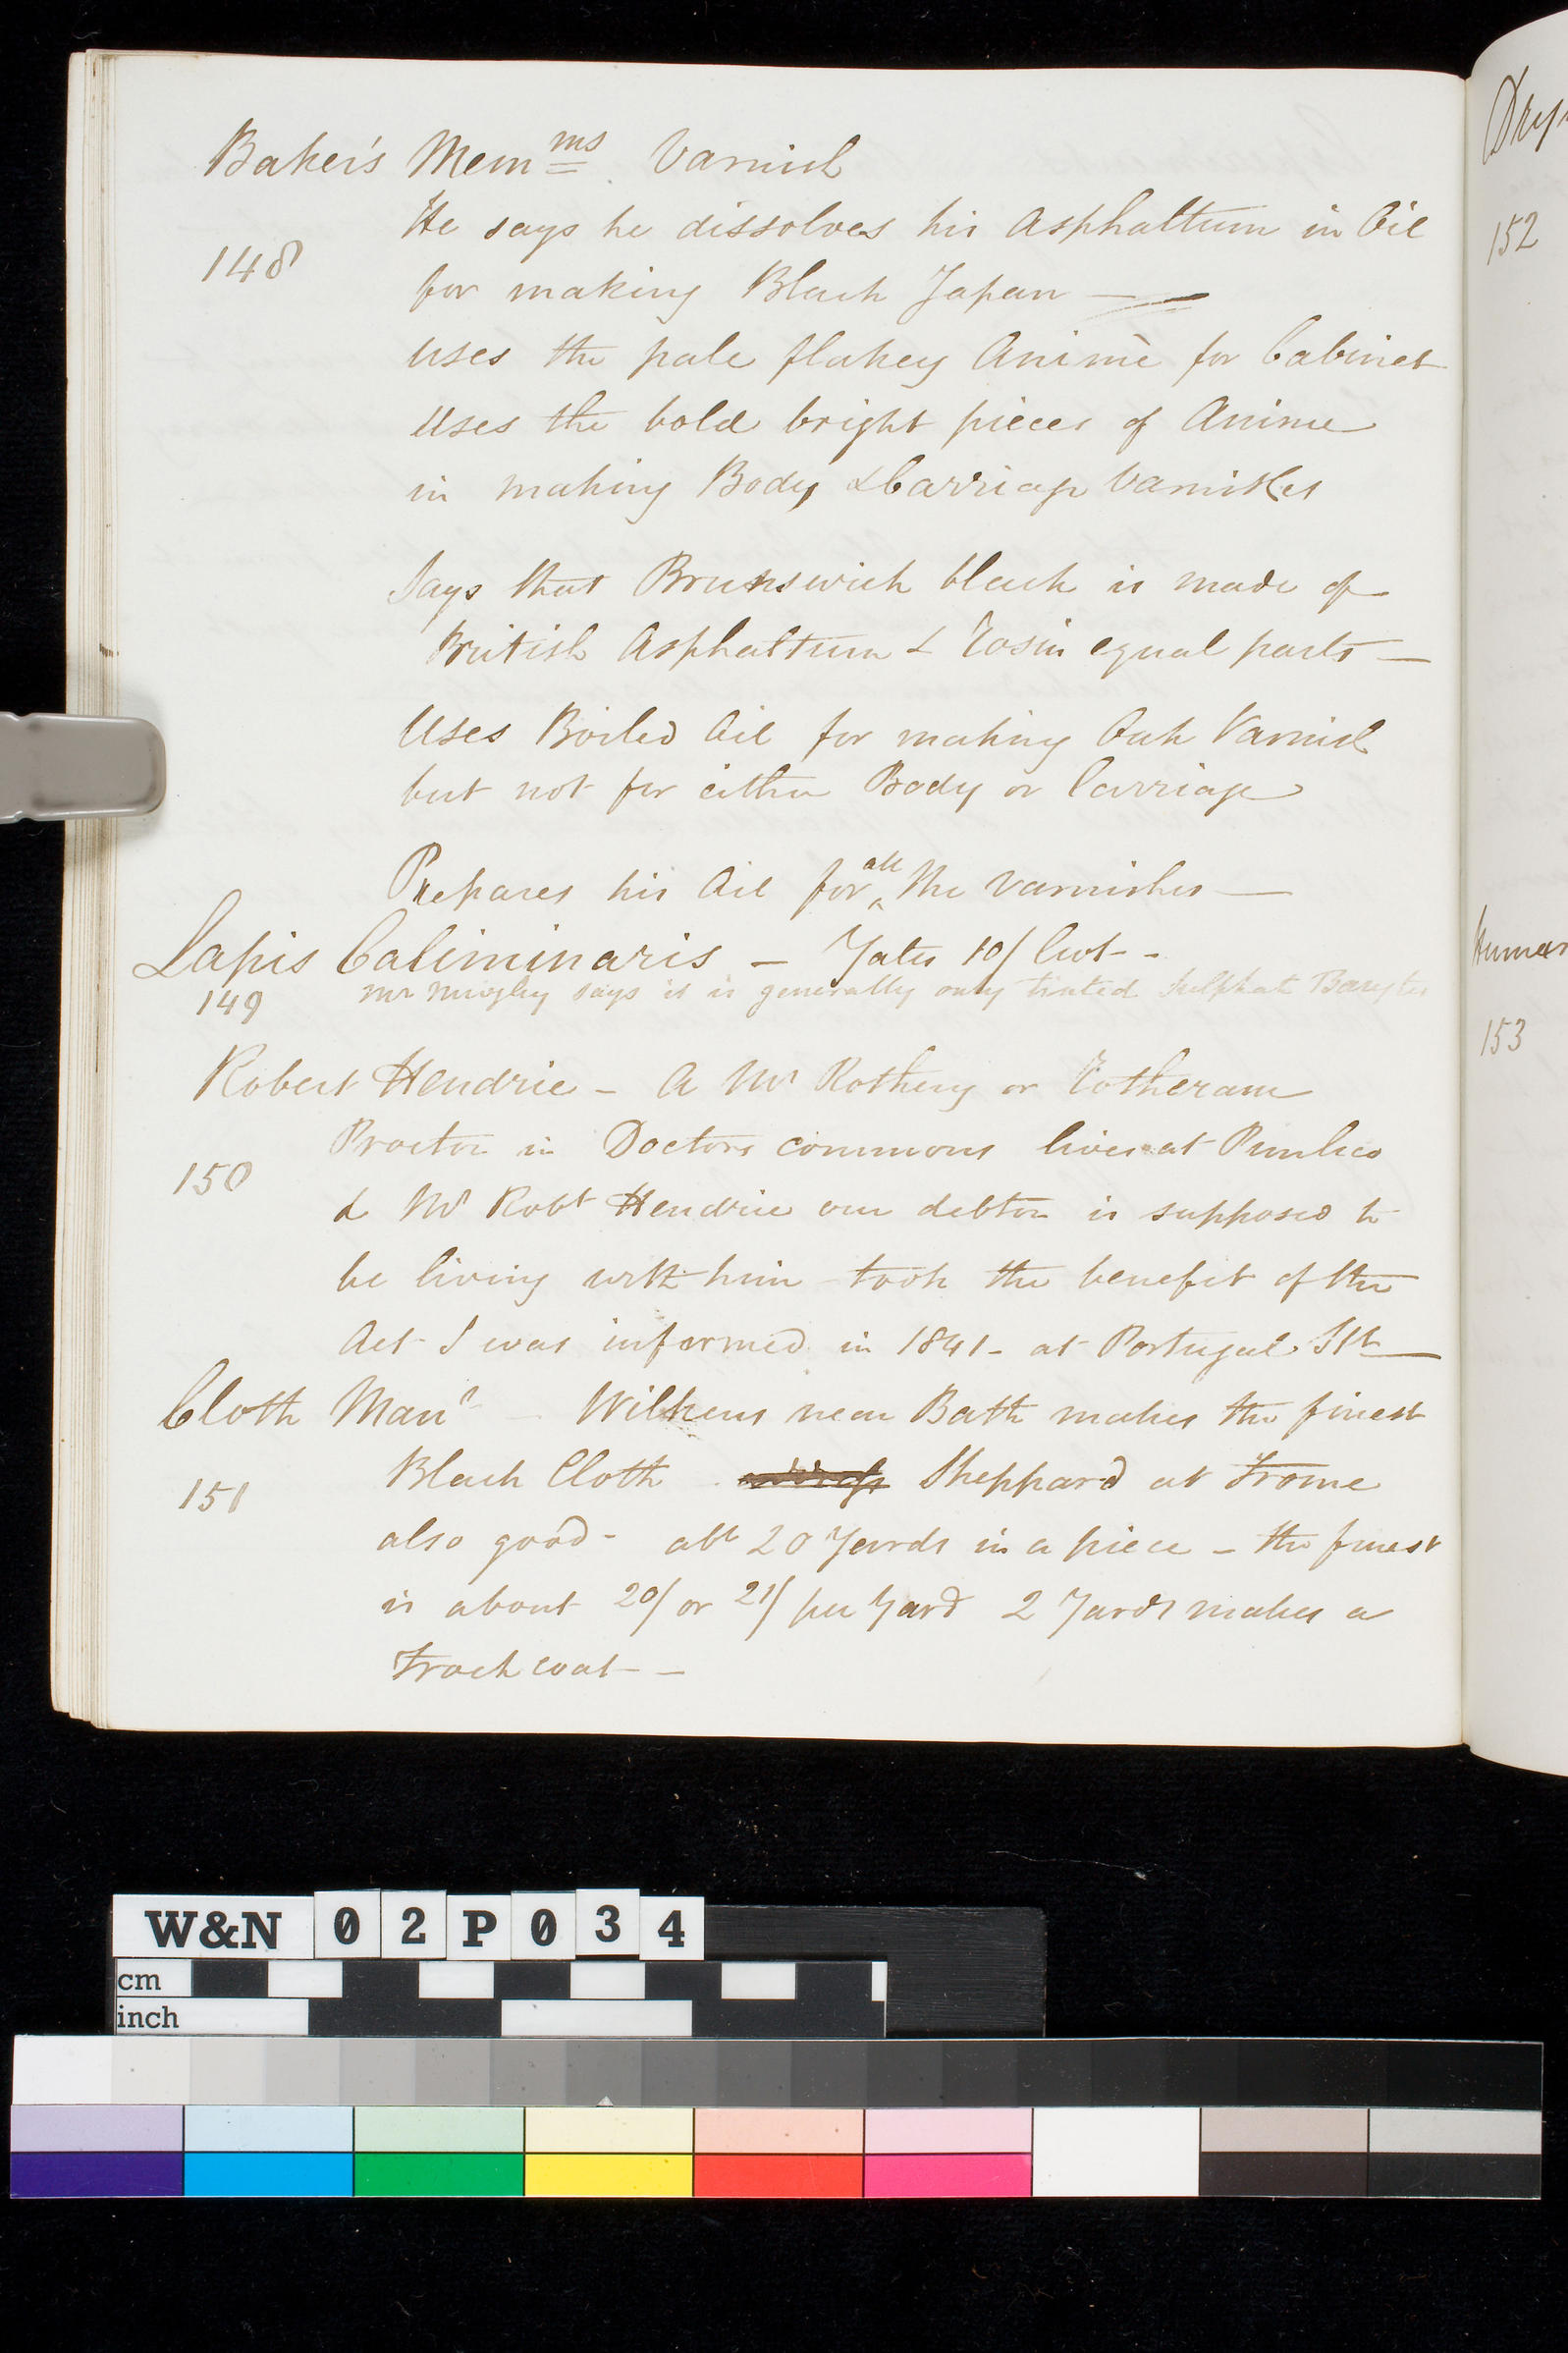 Baker's Mem ms Varnish
He says he dissolves his Asphaltum in Oil
148
for making Black Japan —
uses the pale flakey Animè for Cabinet
Uses the bold bright pieces of Anime
in making Body & Carriage Varnishes
Says that Brunswick black is made of
British Asphaltum & Rosin equal parts —
Uses Boiled Oil for making Oak Varnish
but not for either Body or Carriage
Prepares his Oil for all the varnishes —
Lapis Caliminaris — Yates 10/ Cwt -
149
Mr says it is generally only tinted Sulphat Barytes
Robert Hendrie - A Mr Rothery or Rotheram
Proctor in Doctors commons lives at Pimlico
150
& Mr Robt Hendrie our debtor is supposed to
be living with him took the benefit of the
Act I was informed in 1841 - at Portugal Stt
Cloth Manr - Wilkens near Bath makes the finest
Black Cloth address Sheppard at Frome
151
also good - abt 20 Yards in a piece - the finest
is about 20/ or 21/ per Yard 2 Yards makes a
Frock coat - -
152
Human
153
W&N 02P034
cm
inch